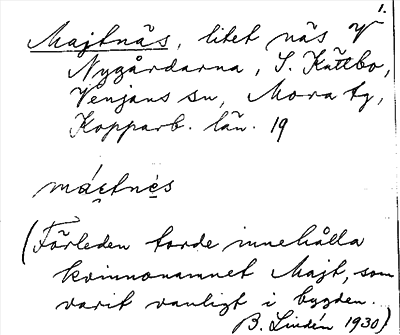 1.
Majtnäs, litet näs V
Nygårdarna, S. Kättbo,
Venjans sn, Mora tg,
Kopparb. län. 19
(Förleden torde innehålla
kvinnonamnet Majt, som
varit vanligt i bygden.
B. Lindén 1930)